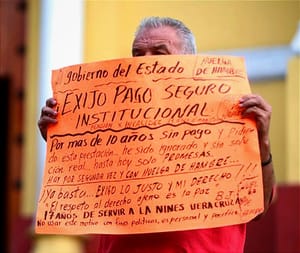 Gobierno del Estado
HUELGA
DE HAMBRE
EXIJO PAGO SEGURO
INSTITUCIONAL
Por mas de 10 años sin pago y Pidien
do esta prestación... he sido ignorado y sin solu
ción real, hasta hoy solo PROMESAS.
HOY POR SEGUNDA VEZ Y CON HUELGA DE HAMBRE...
Ya basta... EXIJO LO JUSTO Y MI DERECHO
"El respeto al derecho ajeno es la Paz" B.J.
17 AÑOS DE SERVIR A LA NIÑES VERACRUZ
NO USAR ESTE MOTIVO CON FINES POLITICOS, ES PERSONAL Y